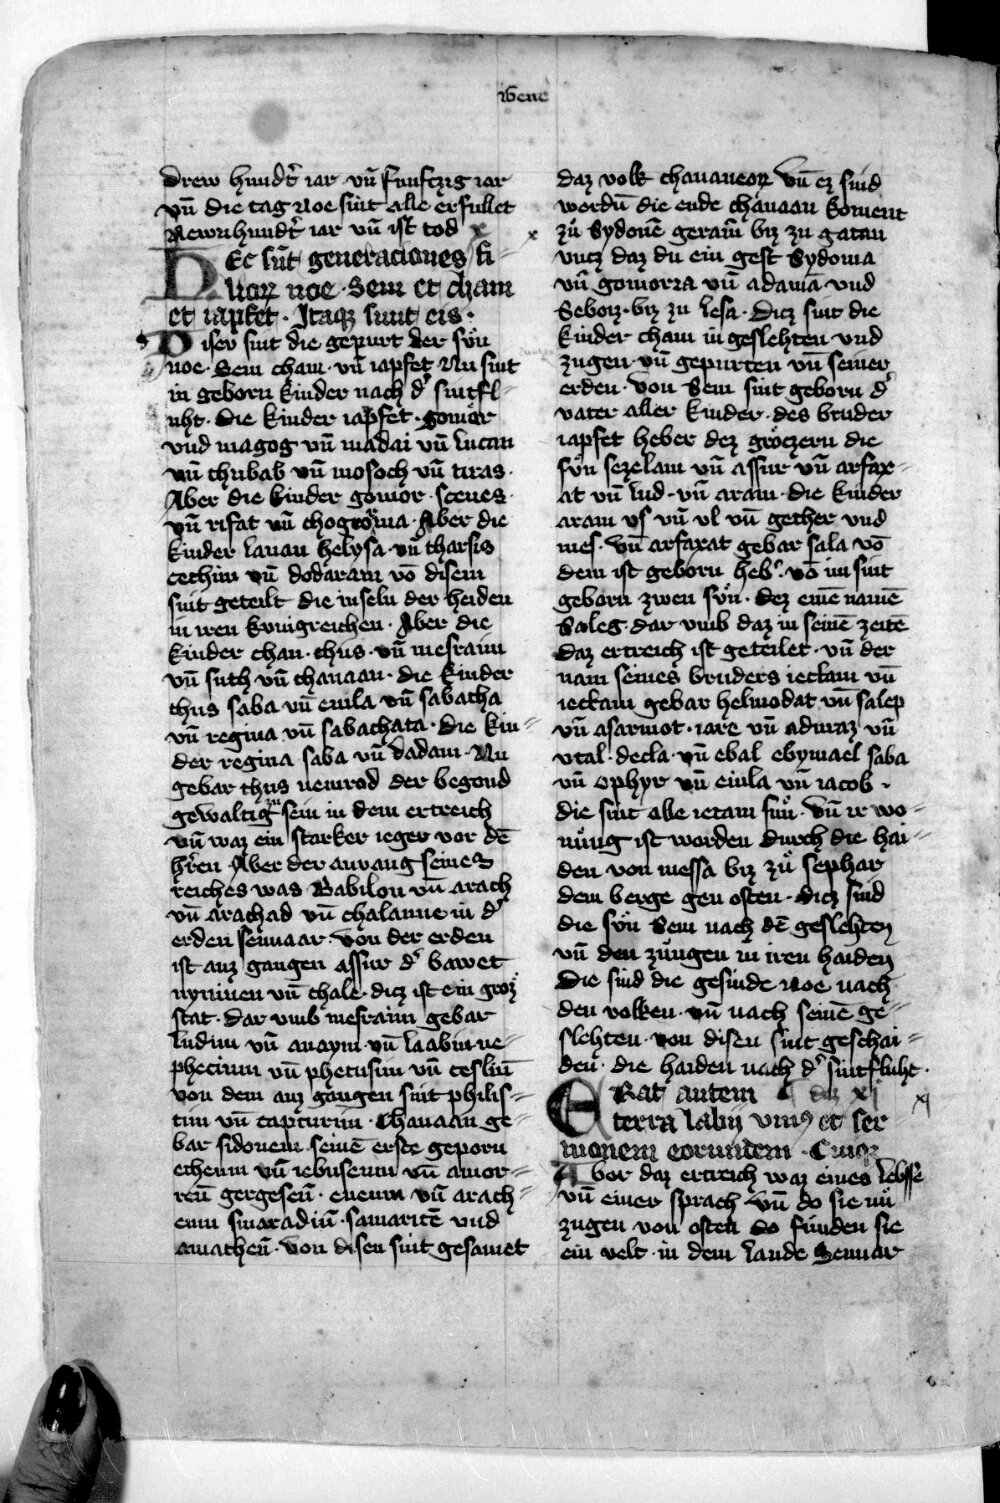 Gene
drew hundt̄ iar vn̄ funftzig iar
vn̄ die tag Noe sint alle erfullet
Newnhundt̄ iar vn̄ ist tod x
HEc sūt generaciones fi-
lioꝝ noe · Sem et cham
et iapfet · Itaqꝫ sunt eis ·
Diser sint die gepurt der sün̊
noe · Sem cham · vn̄ iapfet Nu sint
in geborn kinder nach d' sintfl-
uht · die kinder iapfet · gomor
vnd magog vn̄ madai vn̄ lucan
vn̄ thubab vn̄ mosoch vn̄ tiras ·
Aber die kinder gomor · scenes ·
vn̄ rifat vn̄ thogroma · Aber die
kinder lauan helysa · vn̄ tharsis
cechim vn̄ dodaram vō disem
sint geteilt die inseln der heiden
in iren kunigreichen · Aber die
kinder chan · thus · vn̄ mesraim
vn̄ futh vn̄ chanaan · die kinder
thus saba vn̄ euila vn̄ sabacha
vn̄ regma vn̄ sabachata · die kin-
der regma saba vn̄ dadam · Nu
gebar thus nemrod der begond
gewaltig zu sein in dem ertreich
vn̄ waz ein starker ieger vor dē
hr̄en · Aber der anuang seines
reiches was Babilon vn̄ arach
vn̄ arachad vn̄ chalanne in d'
erden sennaar · von der erden
ist auz gangen assur d' bawet
nyniuen vn̄ chale · ditz ist ein groz
stat · dar vmb mesraim gebar
ludim vn̄ anaym · vn̄ laabim ne-
phecium vn̄ phetusim vn̄ cesliūn
von dem auz gangen sint philis-
tim vn̄ capturim · Chanaan ge-
bar sidonem · seinē erste geporn
etheum vn̄ iebuseum vn̄ amor-
reū gergeseū · eueum vn̄ arach-
eum sinaradiū · samaritē vnd
amatheū · von disen sint gesamet
daz volk chananeoꝝ vn̄ ez sind
wordū die ende chanaan koment
x zu Sydonē geram̄ biz zu gazan
vntz daz du ein gest Sydoma
vn̄ gomorra vn̄ adamā vnd
Seboiz · biz zu lesa · Ditz sint die
kinder cham in geslehten vnd
zugen · vn̄ gepurten vn̄ seiner
erden · von Sem sint geborn d'
vater aller kinder · des bruder
iapfet heber dez groczern die
sün̊ sezelam vn̄ assur vn̄ arfax-
at vn̄ lud · vn̄ aram · die kinder
aram vs vn̄ vl vn̄ gether vnd
mes · vn̄ arfaxat gebar sala vō
dem ist geborn heb' · vō im sint
geborn zwen sün̊ · dez einē namē
Saleg · dar vmb daz in seinē zeite
daz ertreich ist geteilet · vn̄ der
nam seines bruders iectam vn̄
iectam gebar helmodat vn̄ salep
vn̄ asarmot · iare vn̄ aduraz vn̄
vzal · decla · vn̄ ebal ebymael saba
vn̄ ophyr vn̄ eiula vn̄ iacob ·
die sint alle ietam sun̊ · vn̄ ir wo-
nu̇ng ist worden durch die hai-
den von messa biz zu̇ sephar
dem berge gen osten · ditz sind
die sün̊ Sem nach dē geslehten
vn̄ den zungen in iren haiden
die sind die gesinde Noe nach
den volken · vn̄ nach seinē ge-
slehten · von disen sint geschai-
den · die haiden nach d' sintfluht ·
ERat autem daz xj xj
terra labij vniꝰ et ser
monem eorumdem ·
Abor daz ertreich waz eines lebsse
vn̄ einer sprach vn̄ do sie nu̇
zugen von osten do funden sie
ein velt · in dem lande Sennar